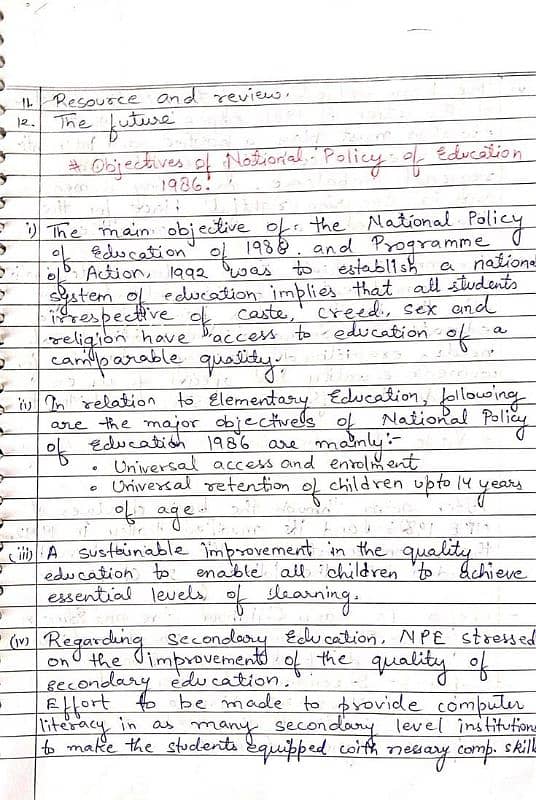 11. Resource and review.
12. The future
* Objectives of National Policy of Education
1986.
i) The main objective of the National Policy
of Education of 1986. and Programme
of Action, 1992 was to establish a nationa
system of education implies that all students
irrespective of caste, creed, sex and
religion have access to education of a
comparable quality.
ii) In relation to Elementary Education, following
are the major objectives of National Policy
of Education 1986 are mainly:-
• Universal access and enrolment
• Universal retention of children upto 14 years
of age.
(iii) A sustainable improvement in the quality
education to enable all children to achieve
essential levels of learning.
(iv) Regarding secondary Education, NPE stressed
on the improvement of the quality of
secondary education.
Effort to be made to provide computer
literacy in as many secondary level institutions
to make the students equipped with nessary comp. skill